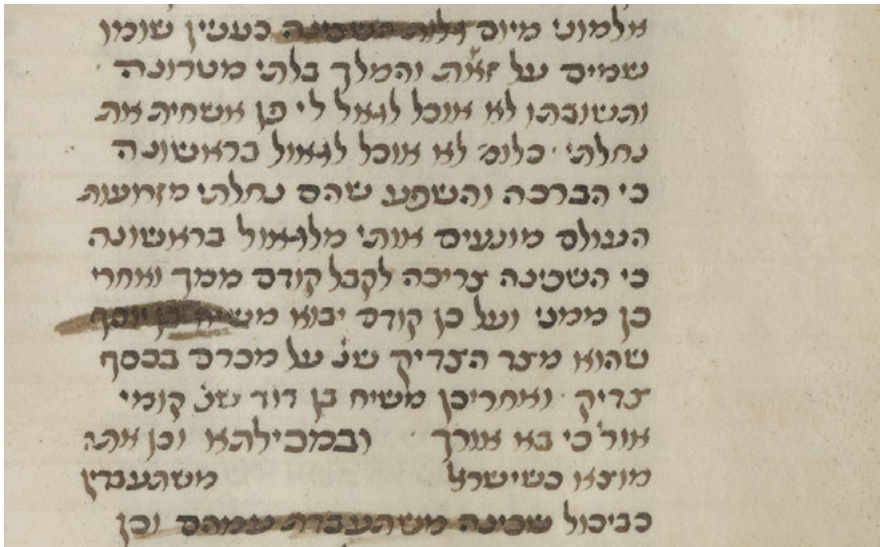 אלמוני מיום גלות השכינה כענין שומו
שמים על זאת והמלך בלתי מטרונה
ותשובתו לא אוכל לגאל לי פן אשחית את
נחלתי כלום לא אוכל לגאול בראשונה
כי הברכה והשפע שהם נחלתי מזרועות
העולם מונעים אותי מלגאול בראשונה
כי השכינה צריכה לקבל קודם ממך ואחרי
כן ממני ועל כן קודם יבוא משיח בן יוסף
שהוא מצד הצדיק שנ' על מכרם בכסף
צדיק ואחריכן משיח בן דוד שנ' קומי
אורי כי בא אורך ובמכילתא וכן אתה
מוצא כשישראל משתעבדין
כביכול שכינה משתעבדת עמהם וכן